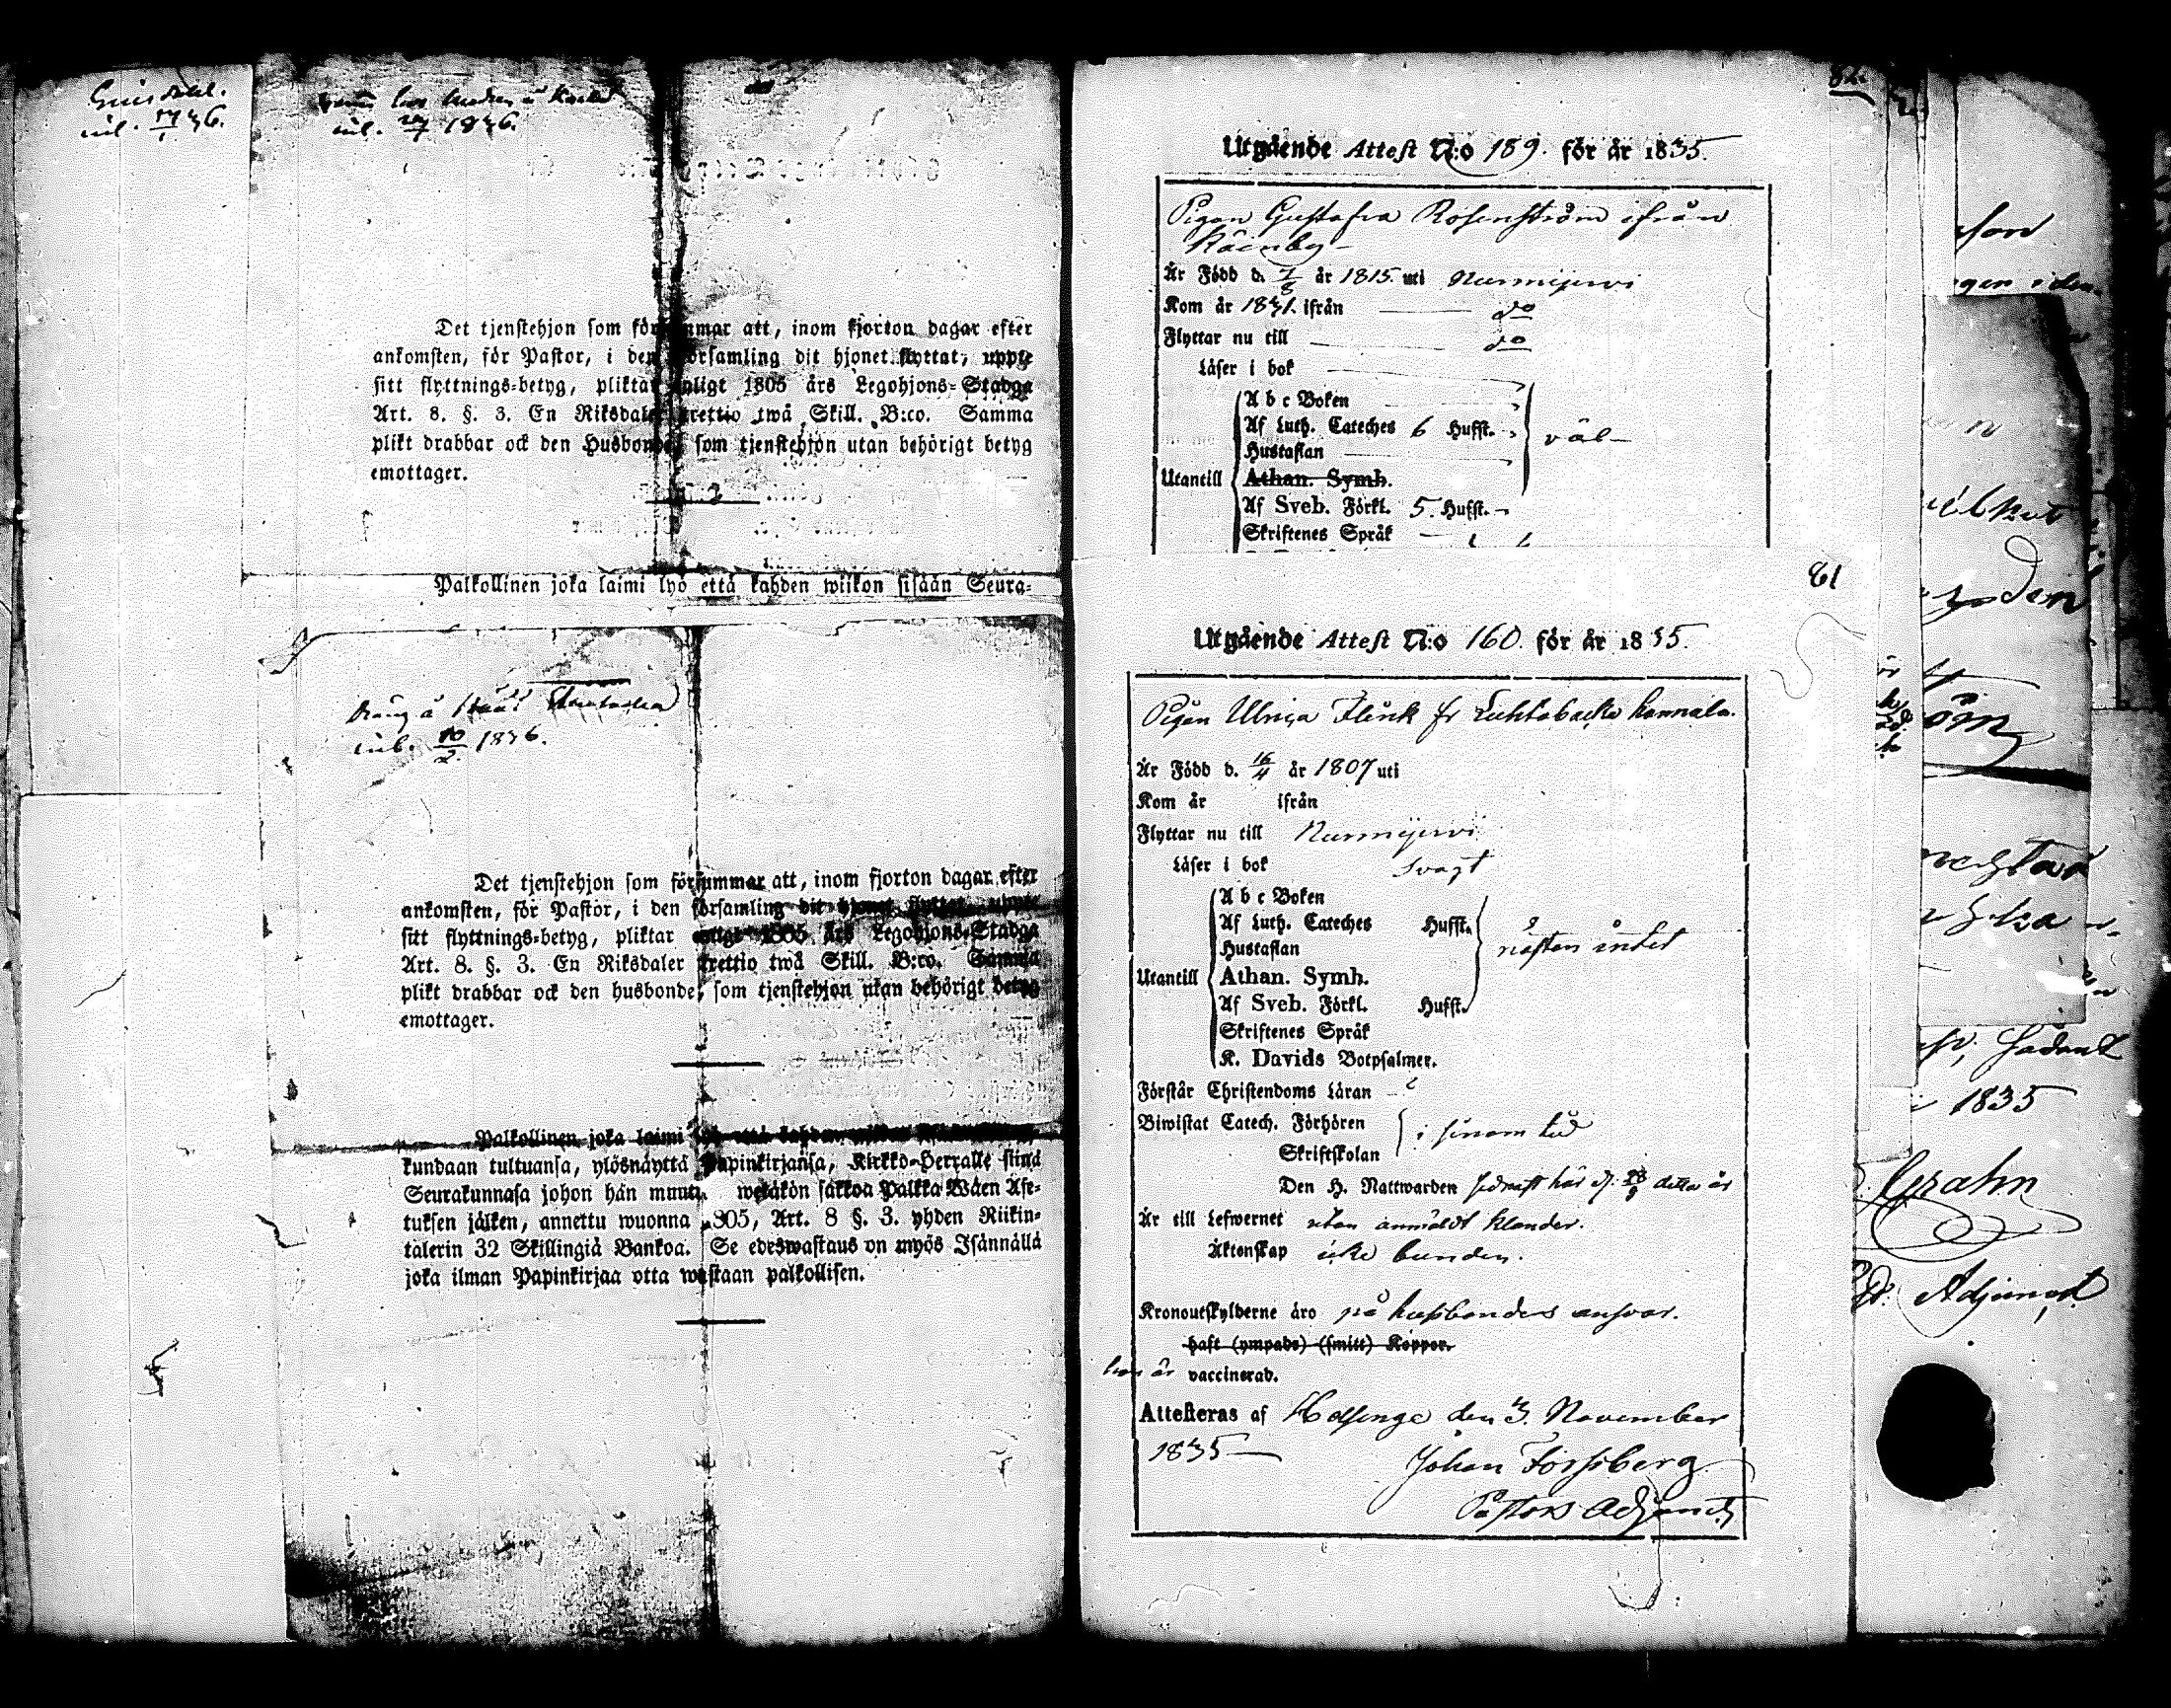 inl. 17/1 36.
inl. 27/1 1836.
Det tjenstehjon som försummar att, inom fjorton dagar efter
ankomsten, för Pastor, i den församling dit hjonet flyttat, uppte
sitt flyttnings-betyg, pliktar enligt 1805 års Legohjons-Stadga
Art. 8. §. 3. En Riksdaler trettio twå Skill. B:co. Samma
plikt drabbar ock den Husbonde, som tjenstehjon utan behörigt betyg
emottager.
Palkollinen joka laimi lyö että kahden wiikon sisään Seura-
inl. 10/2 1836.
Det tjenstehjon som försummar att, inom fjorton dagar efter
ankomsten, för Pastor, i den församling dit hjonet flyttat, uppte
sitt flyttnings-betyg, pliktar enligt 1805 års Legohjons-Stadga
Art. 8. §. 3. En Riksdaler trettio twå Skill. B:co. Samma
plikt drabbar ock den husbonde, som tjenstehjon utan behörigt betyg
emottager.
Palkollinen joka laimi lyö että kahden wiikon sisään Seura-
kundaan tultuansa, ylösnäyttä Papinkirjansa, Kirkko-Herralle siinä
Seurakunnasa johon hän muuta, wetäkön sakkoa Palkka Wäen Ase-
tuksen jälken, annettu wuonna 1805, Art. 8 §. 3. yhden Riikin-
talerin 32 Skillingiä Bankoa. Se edeswastaus on myös Isännällä
joka ilman Papinkirjaa otta wastaan palkollisen.
82.
Utgående Attest N:o 189. för år 1835.
Pigan Gustafva Rosenström ifrån
Käinby
Är Född d. 7/8 år 1815. uti Nurmijervi
Kom år 1831. ifrån do
Flyttar nu till do
Läser i bok
A b c Boken
Af Luth. Cateches 6 Hufst.
Hustaflan
väl
Utantill Athan. Symb.
Af Sveb. Förkl. 5. Hufst.
Skriftenes Språk
81
Utgående Attest N:o 160. för år 1835.
Pigan Ulrica Flink fr Luhtabacka Hannala.
Är Född d. 16/4 år 1807 uti
Kom år ifrån
Flyttar nu till Nurmijervi
Läser i bok svagt
A b c Boken
Af Luth. Cateches Hufst.
Hustaflan
nästan intet
Utantill Athan. Symb.
Af Sveb. Förkl. Hufst.
Skriftenes Språk
K. Davids Botpsalmer.
Förstår Christendoms Läran
Biwistat Catech. Förhören
i sinom tid
Skriftskolan
Den H. Nattwarden sednast här d. detta år
Är till Lefwernet utan anmäldt klander.
Äktenskap icke bunden.
Kronoutskylderne äro på husbondens ansvar.
haft (ympade) (smitt) Koppor.
hon är vaccinerad.
Attesteras af Helsinge den 3. November
1835
Johan Forssberg
Pastors Adjunct
1835
Grahn
Adjunct.